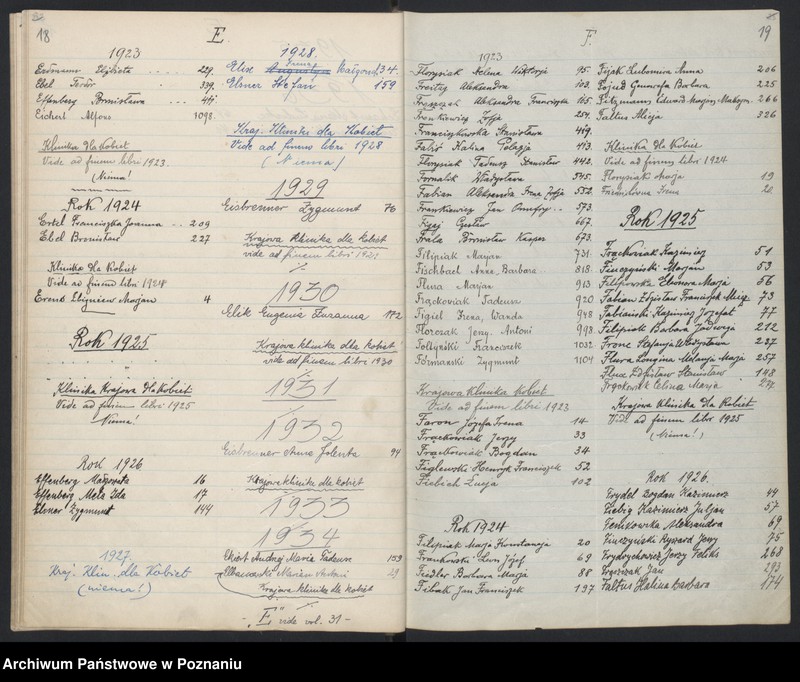 18
E
1923
Erdmann Elżbieta 229.
Ebel Teodor 339.
Effenberg Bronisława 411.
Eichert Alfons 1098.
Klinika dla Kobiet
Vide ad finem libri 1923.
(Niema!)
Rok 1924
Ertel Franciszka Joanna 209
Ebel Bronisław 227
Klinika dla Kobiet
Vide ad finem libri 1924
Ernst Zbigniew Marjan 4
Rok 1925
Klinika Krajowa dla Kobiet
Vide ad finem libri 1925
Niema!
Rok 1926
Effenberg Małgorzata 16
Effenberg Meta Ida 17
Elsner Zygmunt 144
1927.
Kraj. Klin. dla Kobiet
(niema!)
1928.
Elsner Stefan 159
Kraj. Klinika dla Kobiet
Vide ad finem libro 1928
(Niema)
1929
Eisbrenner Zygmunt 76
Krajowa Klinika dla kobiet
vide ad finem libri
1930
Elek Eugenia Zuzanna 172
Krajowa klinika dla kobiet
vide ad finem libro 1930
1931
1932
Eisbrenner Anna Jolenta 94
Krajowa klinik dla kobiet
1933
1934
Andrzej Maria Tadeusz 159
Marian Antoni 29
Krajowa klinika dla kobiet
- „E" vide vol. 31 -
19
F.
1923
Florysiak Helena Wiktorja 95.
Freitag Aleksandra 103.
Aleksandra Franciszka 115.
Frankiewicz Zofja 254.
Franciszkowska Stanisława 419.
Halina Pelagja 413.
Florysiak Tadeusz Stanisław 442.
Fornalik Władysława 545.
Fabian Aleksandra Irena Zofja 552.
Frankiewicz Jan Onufry 573.
Czesław 667.
Frala Bronisław Kacper 673.
Filipiak Marjan 731.
Fischbach Anna Barbara 818.
Flura Marjan 913
Frąckowiak Tadeusz 920
Figiel Irena, Wanda 948
Florczak Jerzy, Antoni 998.
Foltyński Franciszek 1032
Formański Zygmunt 1104
Krajowa Klinika Kobiet
Vide ad finem libri 1923
Faron Józefa Irena 14
Frąckowiak Jerzy 33
Frąckowiak Bogdan 34
Figlewski Henryk Franciszek 52
Fiebich Łucja 102
Rok 1924
Filipiak Marja Konstancja 20
Frankowski Leon Józef 69
Fiedler Barbara Marja 88
Jan Franciszek 197
Fijak Ludomira Anna 206
Genowefa Barbara 225
Edward Marjan 266
Faltus Alicja 326
Klinika dla Kobiet
Vide ad finem libri 1924
Florysiak Marja 19
Irena 20
Rok 1925
Frąckowiak Kazimierz 51
Marjan 53
Filipowska Eleonora Marja 56
Fabian Zdzisław Franciszek 73
Fabiański Kazimierz Józefat 77
Filipiak Barbara Jadwiga 212
Franc Stefanja Władysława 227
Flura Longina Melanja Marja 257
Zdzisław Stanisław 148
Frąckowiak Celina Marja
Krajowa Klinika dla Kobiet
Vide ad finem libri 1925
(Niema!)
Rok 1926.
Frydel Bogdan Kazimierz 44
Fiebig Kazimierz Juljan 57
Aleksandra 69
Ryszard Jerzy 75
Frydrychowicz Jerzy Feliks 268
Jan 293
Faltus Halina Barbara 174
Archiwum Państwowe w Poznaniu